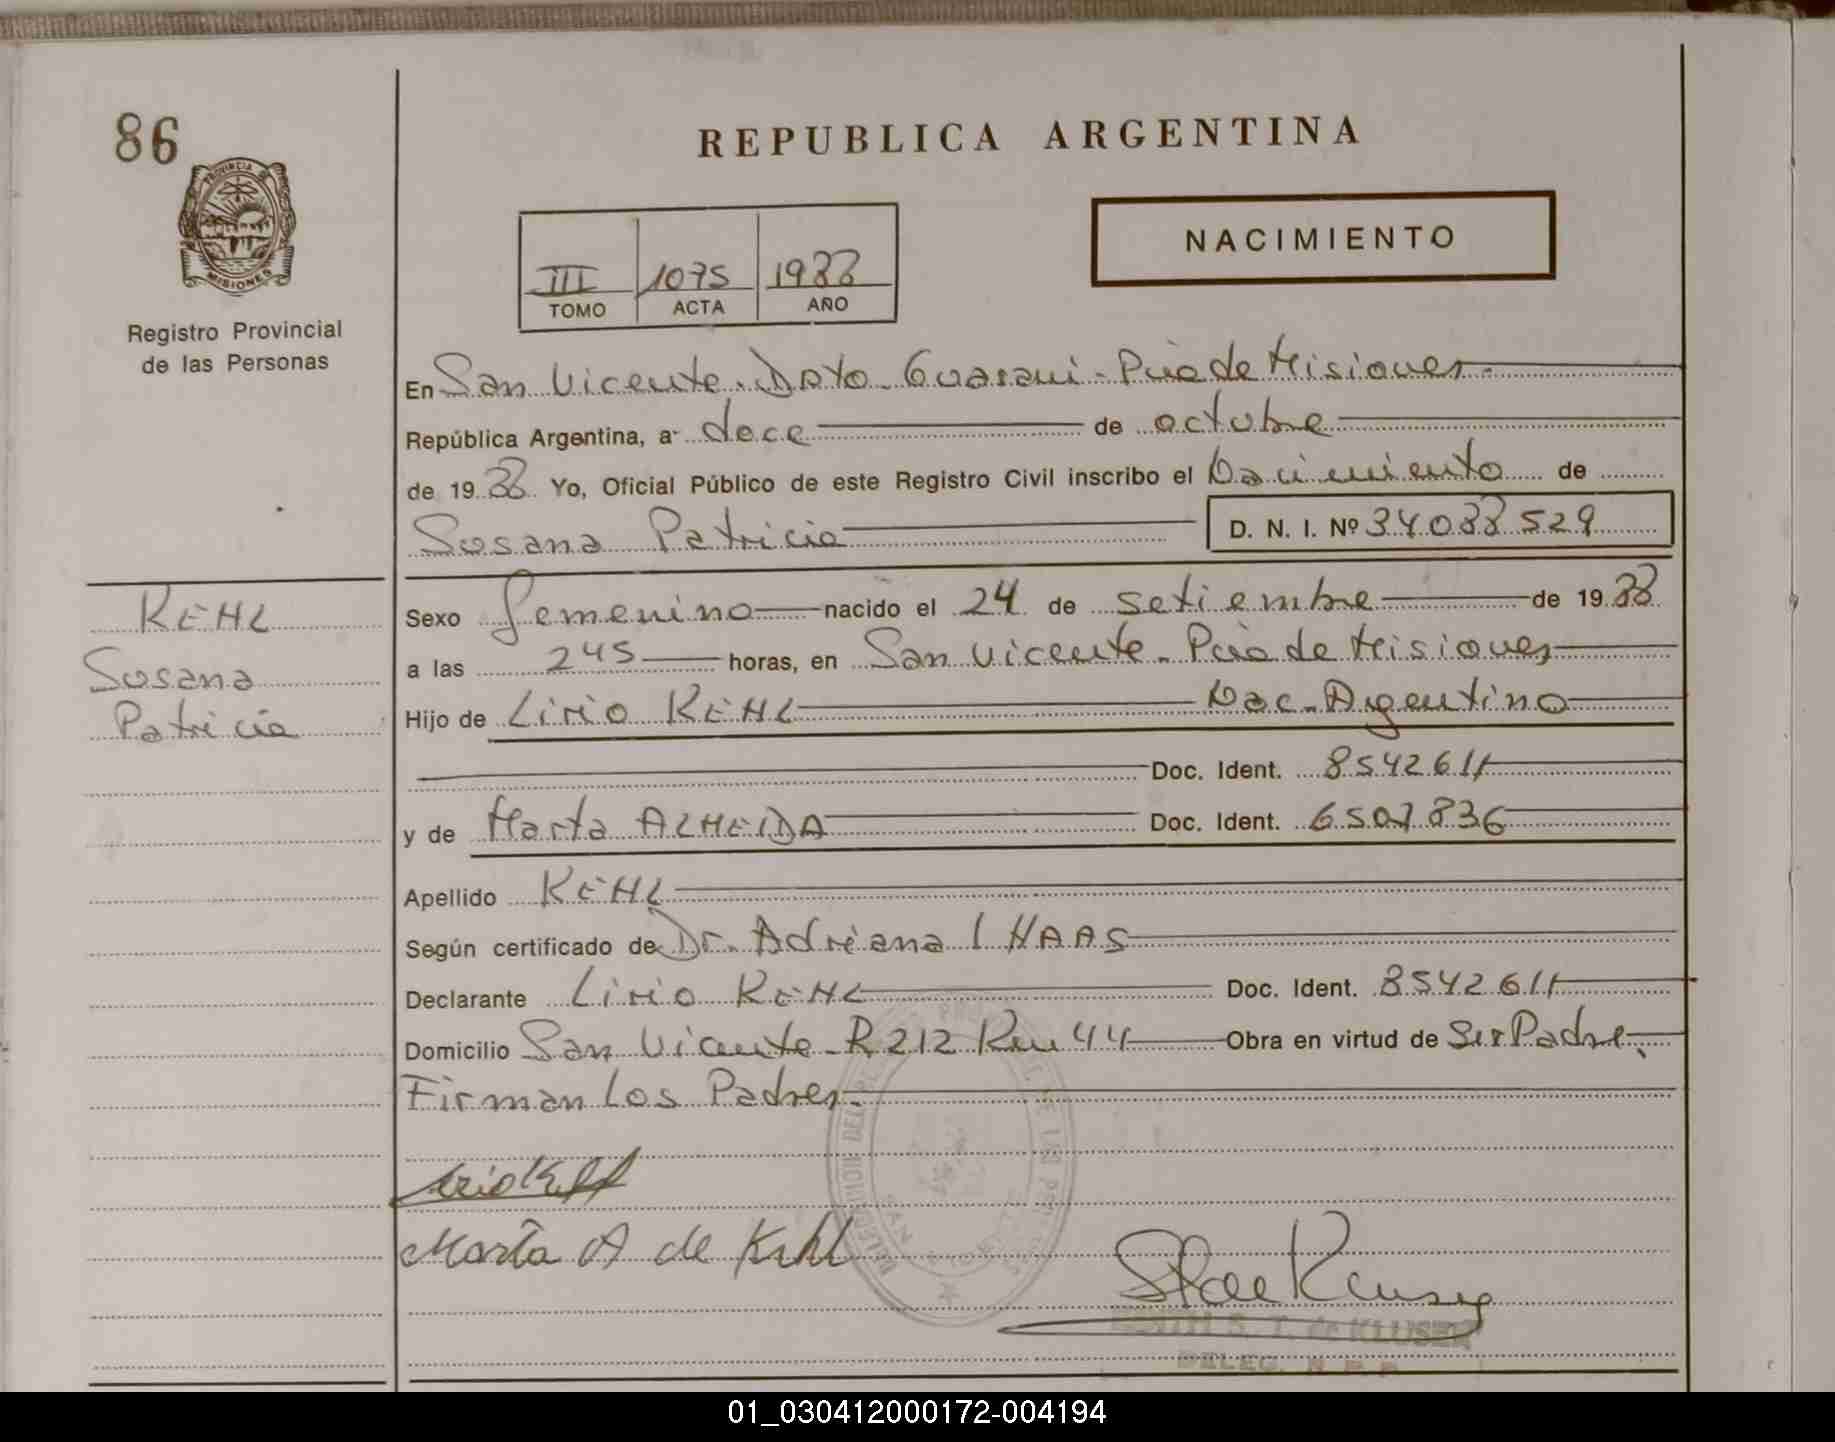 86
PROVINCIA DE
MISIONES
Registro Provincial
de las Personas
REPUBLICA ARGENTINA
NACIMIENTO
III 1075 1988
TOMO ACTA AÑO
En San Vicente. Dpto. Guarani - Pcia de Misiones
República Argentina, a doce de octubre
de 19 88 Yo, Oficial Público de este Registro Civil inscribo el Nacimiento de
Susana Patricia D. N. I. Nº 34088529
KEHL
Susana
Patricia
Sexo femenino nacido el 24 de setiembre de 19 88
a las 245 horas, en San Vicente - Pcia de Misiones
Hijo de Lirio KEHL Nac. Argentino
Doc. Ident. 8542611
y de Marta ALMEIDA Doc. Ident. 6507836
Apellido KEHL
Según certificado de Dr. Adriana I HAAS
Declarante Lirio KEHL Doc. Ident. 8542611
Domicilio San Vicente - R 212 Km 44 Obra en virtud de Ser Padre.
Firman Los Padres.
Lirio Kehl
Marta A de Kehl
S. T. de KLUSER
DELEG. R. P. P.
01_030412000172-004194